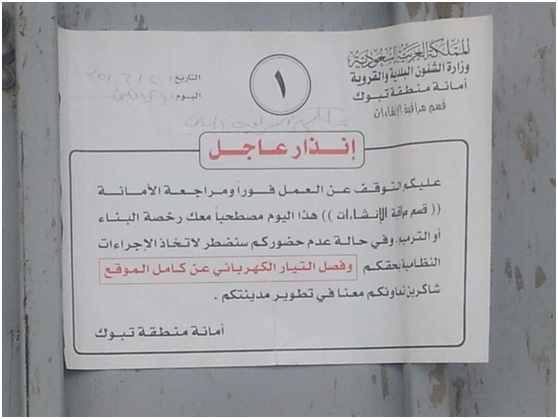 المملكة العربية السعودية
وزارة الشئون البلدية والقروية
أمانة منطقة تبوك
قسم مراقبة الإنشاءات
١
التاريخ:
اليوم:
إنذار عاجل
عليكم التوقف عن العمل فوراً ومراجعة الأمانة
(( قسم مراقبة الإنشاءات )) هذا اليوم مصطحباً معك رخصة البناء
أو الترميم وفي حالة عدم حضوركم سنضطر لاتخاذ الإجراءات
النظامية بحقكم وفصل التيار الكهربائي عن كامل الموقع
شاكرين تعاونكم معنا في تطوير مدينتكم .
أمانة منطقة تبوك